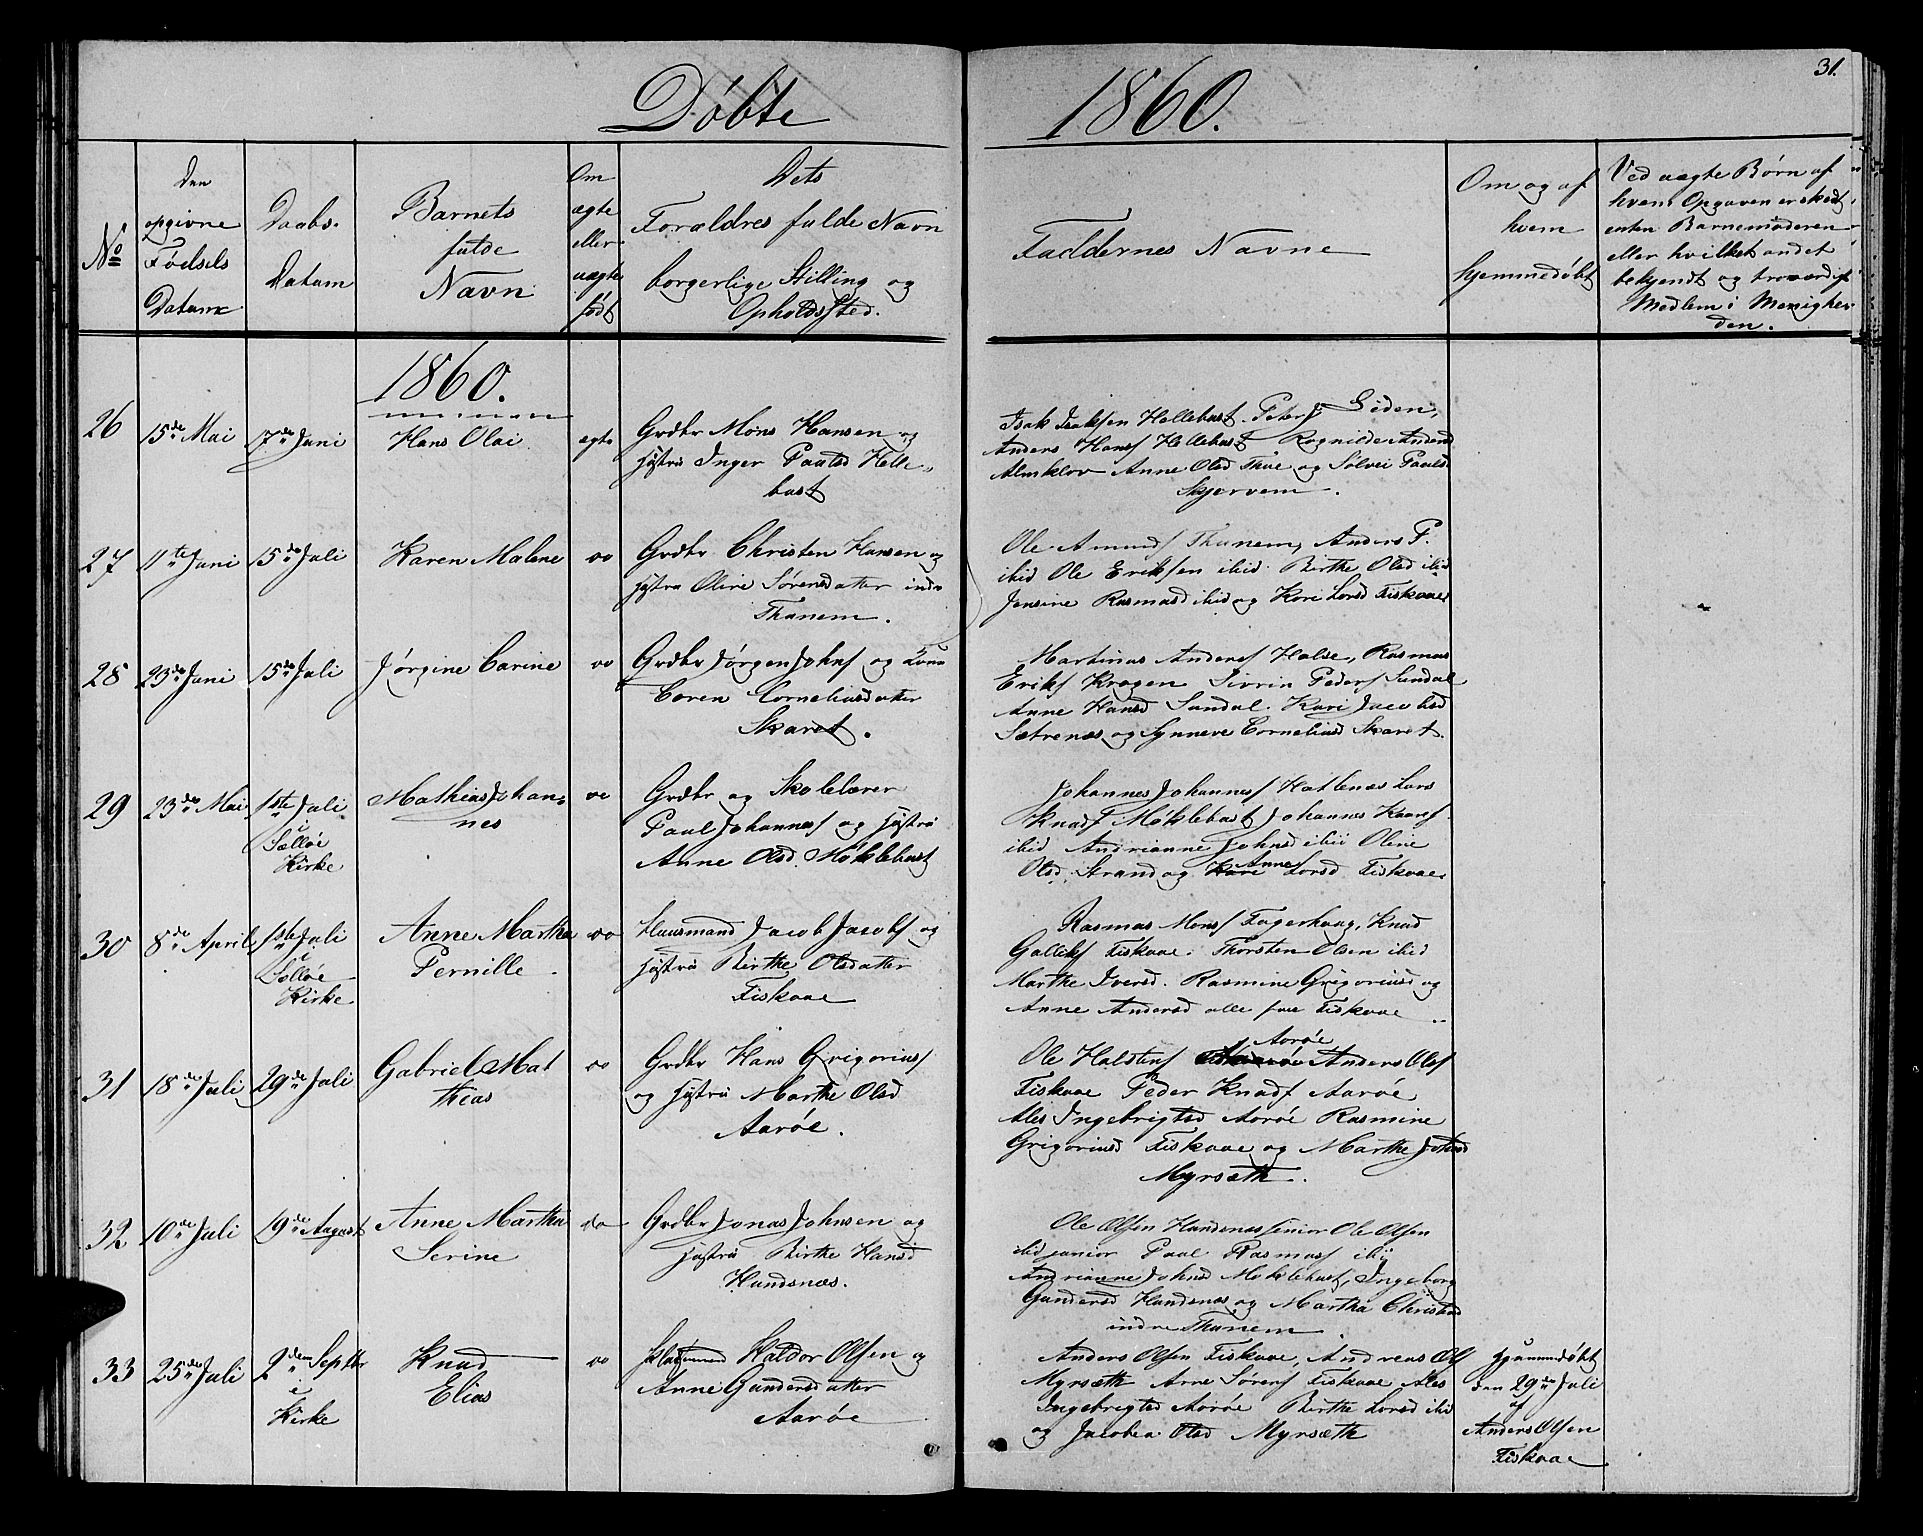 31.
Døbte 1860.
No
Den
opgivne
Fødsels
Datum
Daabs-
Datum
Barnets
fulde
Navn
Om
ægte
eller
uægte
født
Dets
Forældres fulde Navn
borgerlige Stilling og
Opholdssted.
Faddernes Navne
Om og af
hvem
hjemmedøbt
Ved uægte Børn af
hvem Opgaven er skeet,
enten Barnemoderen
eller hvilket andet
bekjendt og troværdigt
Medlem i Menighe-
den.
1860.
26
15de Mai
17de Juni
Hans Olai
ægte
Grdbr Mons Hansen og
Hustru Inger Paulsd Helle-
bust
Isak Isaksen Hellebust. Peter J. Eiden,
Anders Hans Hellebust Ragnilde Andersd
Almklov Anne Olsd Thue og Sølvei Paulsd
Skjervem.
27
11te Juni
15de Juli
Karen Malene
do
Grdbr Christen Hansen og
Hustru Oline Sørensdatter indre
Thunem.
Ole Amunds Thunem, Anders P.
ibid Ole Eriksen ibid. Birthe Olsd ibid
Jensine Rasmusd ibid og Kari Larsd Fiskaae
28
23de Juni
15de Juli
Jørgine Carine
do
Grdbr Jørgen Johns og Kone
Caren Corneliusdatter
Skaret.
Martinus Anders Halse, Rasmus
Eriks Kragen Sivrin Peders Sundal
Anne Hansd Sundal. Kari Jacobsd
Sætrenæs og Synneve Corneliusd Skaret.
29
23de Mai
1ste Juli
i
Sælløe
Kirke
Mathias Johan-
nes
do
Grdbr og Skolelærer
Paul Johannes og Hustru
Anne Olsd. Møklebust
Johannes Johannes Hatlenæs Lars
Knuds Møklebust Johannes Kaares
ibid Andrianne Johnsd ibid Oline
Olsd. Strand og Kari Anne Larsd Fiskaae
30
8de April
1ste Juli
i
Sælløe
Kirke
Anne Martha
Pernille
do
Huusmand Jacob Jacobs og
Hustru Birthe Olsdatter
Fiskaae
Rasmus Mons Fagerhaug, Knud
Galliks Fiskaae. Thorsten Olsen ibid
Marthe Iversd. Rasmine Grigoriusd og
Anne Andersd alle paa Fiskaae
31
18de Juli
29de Juli
Gabriel Mat
thias
do
Grdbr Hans Grigorius
og Hustru Marthe Olsd
Aarøe.
Ole Halstens Aarøe Anders Ols
Fiskaae Peder Knuds Aarøe
Ales Ingebrigtsd Aarøe Rasmine
Grigoriusd Fiskaae og Marthe Johnsd
Myrsæth.
32
10de Juli
19de August
Anne Martha
Serine
do
Grdbr Jonas Johnsen og
Hustru Birthe Hansd
Hundsnæs.
Ole Olsen Hundsnæs senior Ole Olsen
ibid junior Paul Rasmus ibid
Andrianne Johnsd Møklebust, Ingeborg
Gundersd Hundsnæs og Martha Christensd
indre Thunem.
33
25de Juli
2den Septbr
i
Kirke
Knud
Elias
do
Haldor Olsen og
Anne Gundersdatter
Aarøe
Anders Olsen Fiskaae, Andreas Ols
Myrsæth Arne Sørens Fiskaae Ales
Ingebrigtsd Aarøe Birthe Larsd ibid
og Jacobea Olsd Myrsæth
Hjemmedøbt
den 29de Juli
af
Anders Olsen
Fiskaae